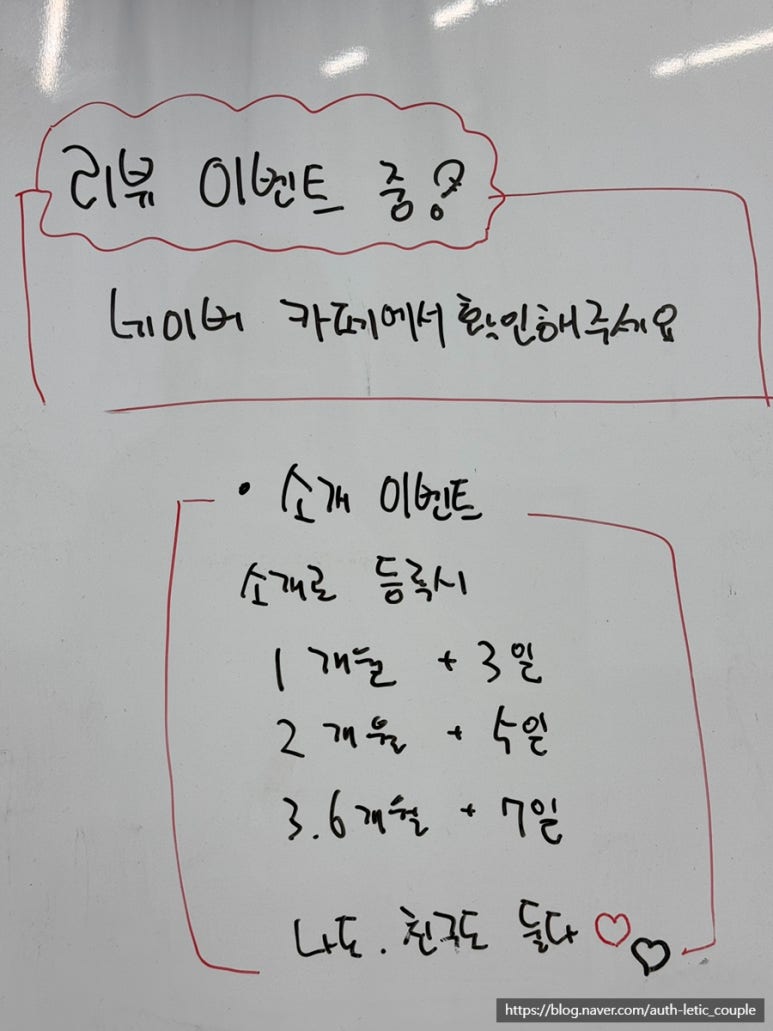 리뷰 이벤트 중!
네이버 카페에서 확인해주세요
• 소개 이벤트
소개로 등록시
1 개월 + 3일
2 개월 + 5일
3.6개월 + 7일
나도. 친구도 둘다 ♡♡
https://blog.naver.com/auth-letic_couple